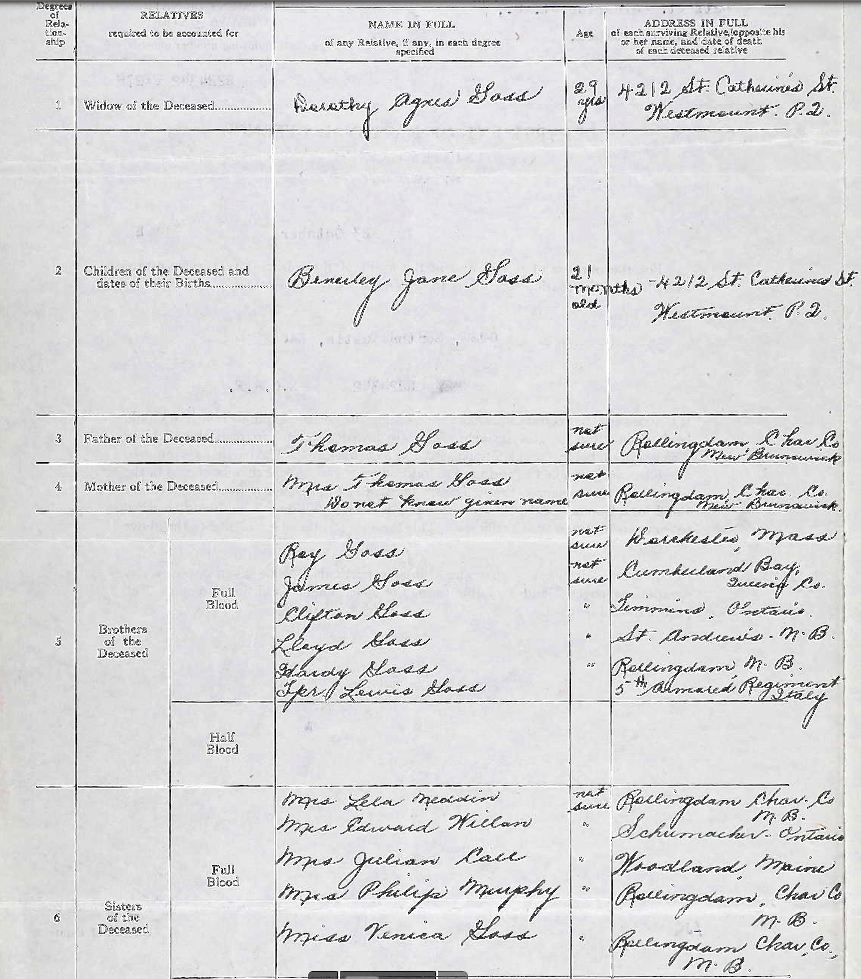 Degrees of Rela- tion- ship
RELATIVES
required to be accounted for
NAME IN FULL
of any Relative, if any, in each degree specified
Age
ADDRESS IN FULL
of each surviving Relative, opposite his or her name, and date of death of each deceased relative
1 Widow of the Deceased Dorothy Agnes Goss 29 yrs 4212 St. Catherines St.
Westmount. P.Q.
2 Children of the Deceased and dates of their Births Beverley Jane Goss 21 months old -4212 St. Catherines St.
Westmount. P.Q.
3 Father of the Deceased Thomas Goss not sure Rollingdam, Char Co
New Brunswick
4 Mother of the Deceased Mrs Thomas Goss not sure Rollingdam, Char. Co.
Do not know given name New Brunswick.
5 Brothers of the Deceased
Full Blood
Roy Goss not sure Worchester, Mass
James Goss not sure Cumberland Bay,
Queens Co.
Clifton Goss " Timmins, Ontario.
Lloyd Goss " St. Andrews - N.B.
Hardy Goss " Rollingdam N.B.
Tpr Lewis Goss 5th Armored Regiment
Italy
Half Blood
6 Sisters of the Deceased
Full Blood
Mrs Lela not sure Rollingdam Char. Co
N.B.
Mrs Edward Willan " Schumacher - Ontario
Mrs Julian Call " Woodland, Maine
Mrs Philip Murphy " Rollingdam, Char Co
N.B.
Miss Venica Goss " Rollingdam Char, Co.,
N.B.